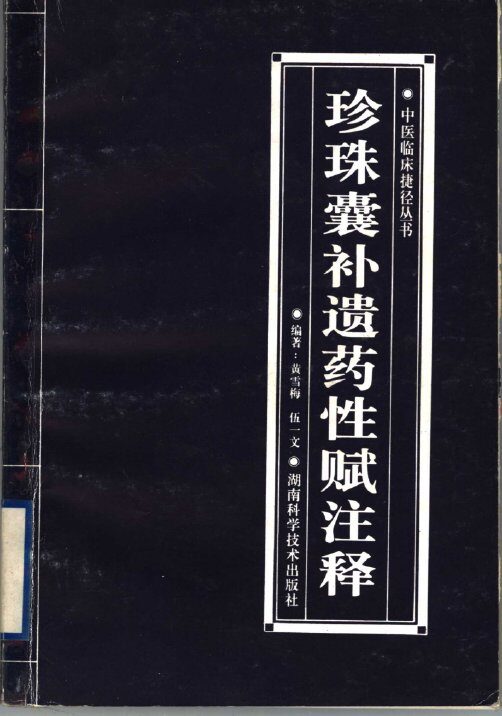 中医临床捷径丛书
珍珠囊补遗药性赋注释
编著：黄雪梅 伍一文
湖南科学技术出版社